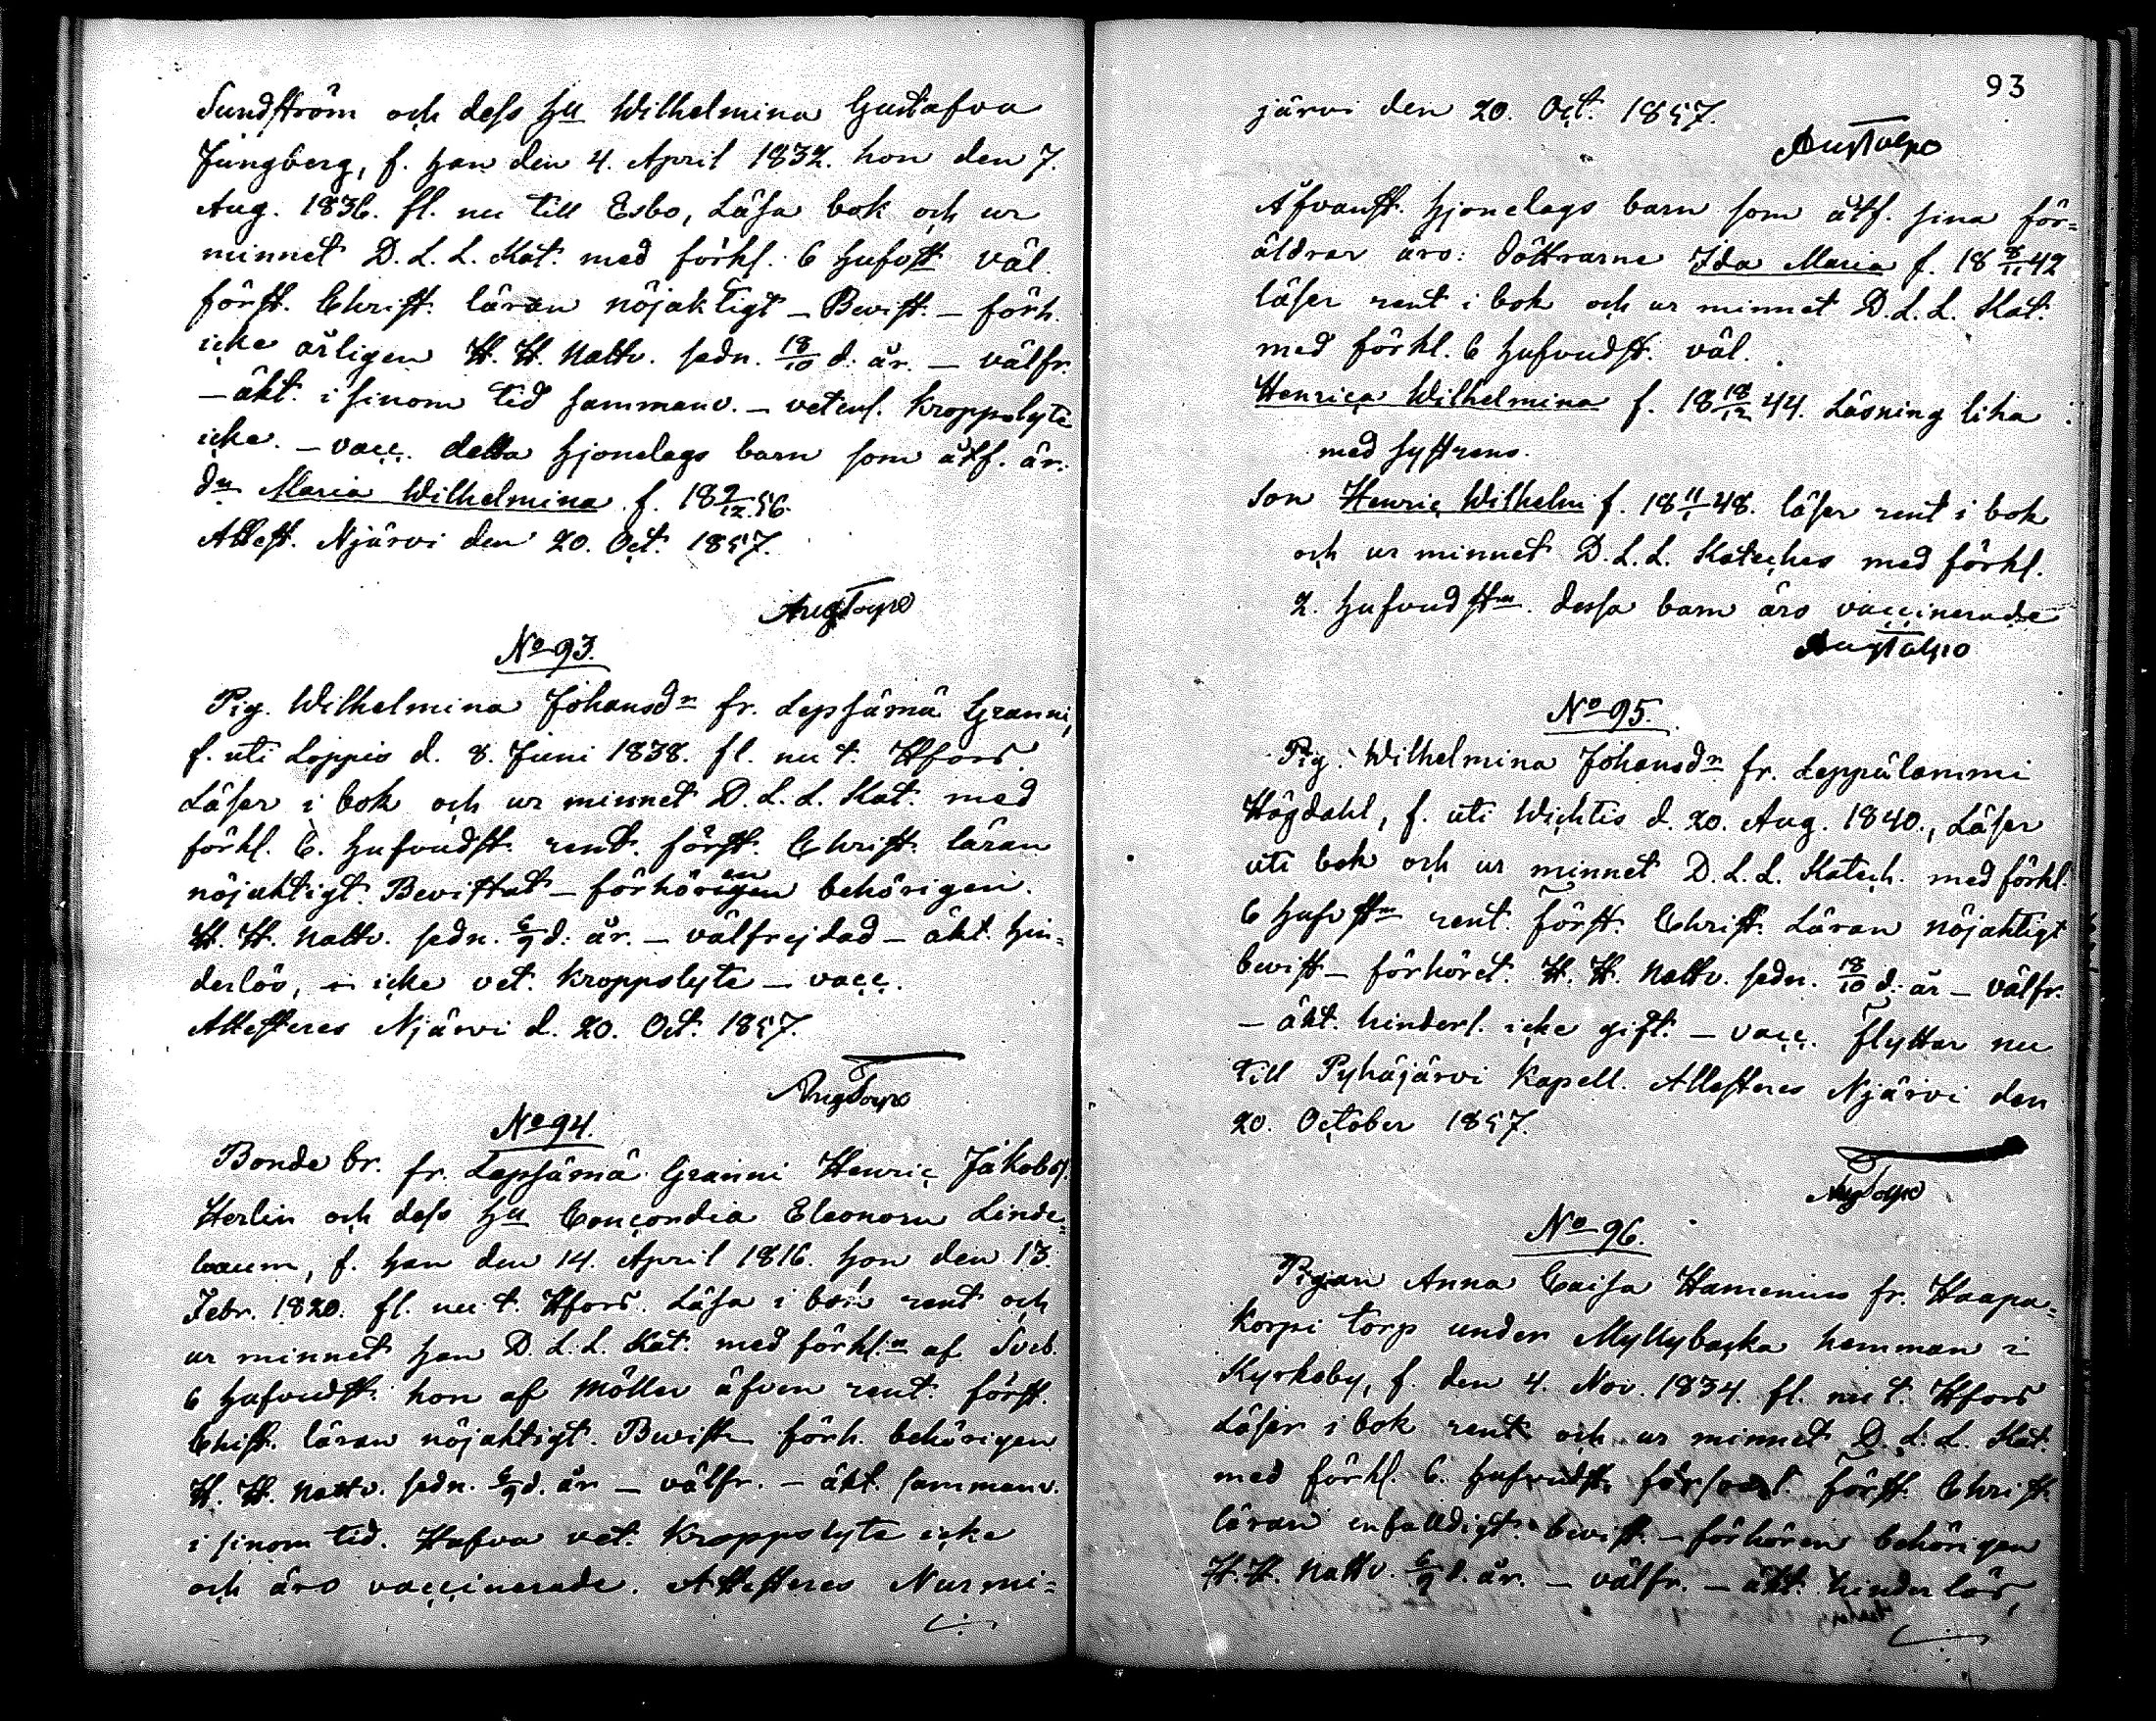 Sundström och dess Hu Wilhelmina Gustafva
Jungberg, f. han den 4. April 1832. hon den 7.
Aug. 1836. fl. nu till Esbo, Läsa bok och ur
minnet D. L. L. Kat. med förkl. 6 Hufvst väl.
först. Christ. läran nöjaktigt – Bevist. – förh.
icke årligen H. H. Nattv. sedn. 18/10 d. år. – välfr.
– äkt. i sinom tid sammanv. – veterl. kroppslyte
icke. – vacc. detta Hjonelags barn som åtf. är.
dn Maria Wilhelmina f. 18 9/12 56.
Attest. Njärvi den 20. Oct. 1857.
AugTolpo
No 93.
Pig. Wilhelmina Johansdn fr. Lepsämä Granni,
f. uti Loppis d. 8. Juni 1838. fl. nu t. Hfors.
Läser i bok och ur minnet D. L. L. Kat. med
förkl. 6. Hufvudst. rent. först. Christ. läran
nöjaktigt. Bevistat – förhören behörigen.
H. H. Nattv. sedn. 6/9 d. år. – välfrejdad – äkt. hin=
derlös, – icke vet. kroppslyte – vacc.
Attesteres Njärvi d. 20. Oct. 1857.
AugTolpo
No 94.
Bonde br. fr. Lepsämä Granni Henric Jakobs.
Herlin och dess Hu Concordia Eleonora Linde=
baum, f. han den 14. April 1816. hon den 13.
Febr. 1820. fl. nu t. Hfors. Läsa i bok rent och
ur minnet han D. L. L. Kat. med förkl:n af Sveb.
6 Hufvudst. hon af Möller äfven rent. först.
Christ. läran nöjaktigt. Bevist. förh. behörigen
H. H. Nattv. sedn. 6/9 d. år – välfr. – äkt. sammanv.
i sinom tid. Hafva vet. kroppslyte icke
och äro vaccinerade. Attesteres Nurmi=
93
järvi den 20. Oct. 1857.
AugTolpo
Åfvanst. Hjonelags barn som åtf. sina för=
äldrar äro: döttrarne Ida Maria f. 18 8/11 42
läser rent i bok och ur minnet D. L. L. Kat.
med förkl. 6 Hufvudst. väl.
Henrica Wilhelmina f. 18 18/12 44. Läsning lika
med systrens.
son Henric Wilhelm f. 18 11/1 48. läser rent i bok
och ur minnet D. L. L. Kateches med förkl.
2. Hufvudstn. dessa barn äro vaccinerade
AugTolpo
No 95.
Pig. Wilhelmina Johansdn fr. Leppälammi
Högdahl, f. uti Wichtis d. 20. Aug. 1840., Läser
uti bok och ur minnet D. L. L. Katech. med förkl.
6 Hufvstn rent. Först. Christ. Läran nöjaktigt
bevist – förhöret. H. H. Nattv. sedn. 18/10 d. år – välfr.
– äkt. hinderl. icke gift. – vacc. Flyttar nu
till Pyhäjärvi Kapell. Attesteres Njärvi den
20. October 1857.
AugTolpo
No 96.
Pigan Anna Caisa Hamenius fr. Haapa=
korpi torp under Myllybacka hemman i
Kyrkoby, f. den 4. Nov. 1834. fl. nu t. Hfors
Läser i bok rent och ur minnet D. L. L. Kat.
med förkl. 6. Hufvudst. försvarl. Först. Christ.
läran enfalldigt. bevist. – förhören behörigen
H. H. Nattv. 6/9 d. år. – välfr. – äkt. hinderlös,